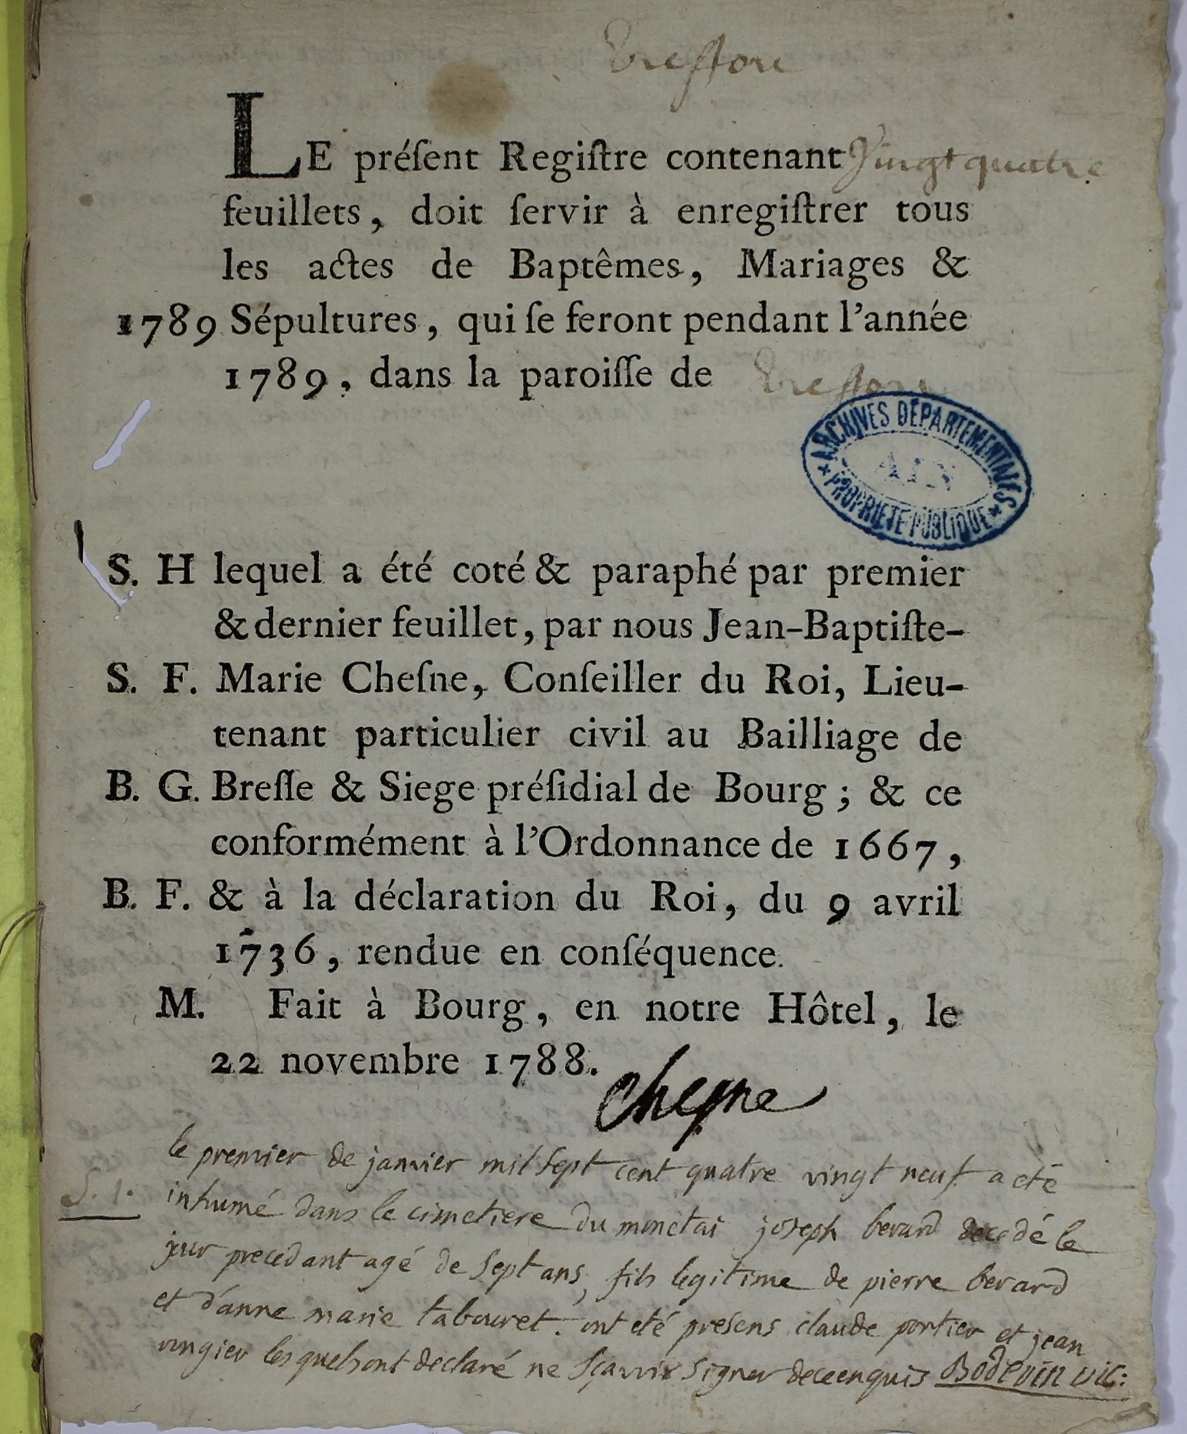 Treffort
LE préſent Regiſtre contenant Vingt quatre
feuillets, doit ſervir à enregiſtrer tous
les actes de Baptêmes, Mariages &
1789 Sépultures, qui ſe feront pendant l'année
1789, dans la paroiſſe de Treffort
ARCHIVES DÉPARTEMENTALES
AIN
* PROPRIÉTÉ PUBLIQUE *
S. H lequel a été coté & paraphé par premier
& dernier feuillet, par nous Jean-Baptiſte-
S. F. Marie Cheſne, Conſeiller du Roi, Lieu-
tenant particulier civil au Bailliage de
B. G. Breſſe & Siege préſidial de Bourg; & ce
conformément à l'Ordonnance de 1667,
B. F. & à la déclaration du Roi, du 9 avril
1736, rendue en conſéquence.
M. Fait à Bourg, en notre Hôtel, le
22 novembre 1788.
Chesne
le premier de janvier mil sept cent quatre vingt neuf a eté
S. 1. inhumé dans le cimetiere du monetai joseph berard decedé le
jour precedant agé de sept ans, fils legitime de pierre berard
et d'anne marie tabouret. ont eté presens claude portier et jean
vongier lesquels ont declaré ne sçavoir signer de ce enquis Bodevin vic: